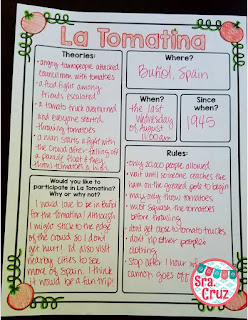 La Tomatina
Theories:
• angry townspeople attacked
councilmen with tomatoes
• a food fight among
friends escalated
• a tomato truck overturned
and everyone started
throwing tomatoes
• a man starts a fight with
the crowd after falling off
a parade float & they
throw tomatoes @ him
Where?
Buñol, Spain
When?
the last
Wednesday
of August
11:00am
Since
when?
1945
Would you like to
participate in La Tomatina?
Why or why not?
I would love to be in Buñol
for the Tomatina! Although
I might stick to the edge
of the crowd so I don't
get hurt! I'd also visit
nearby cities to see
more of Spain. I think
it would be a fun trip!
Rules:
• only 20,000 people allowed
• wait until someone reaches the
ham on the greased pole to begin
• may only throw tomatoes
• must squash the tomatoes
before throwing
• don't get close to tomato trucks
• don't rip other people's
clothing
• stop after 1 hour w/
cannon goes off
Sra.
Cruz